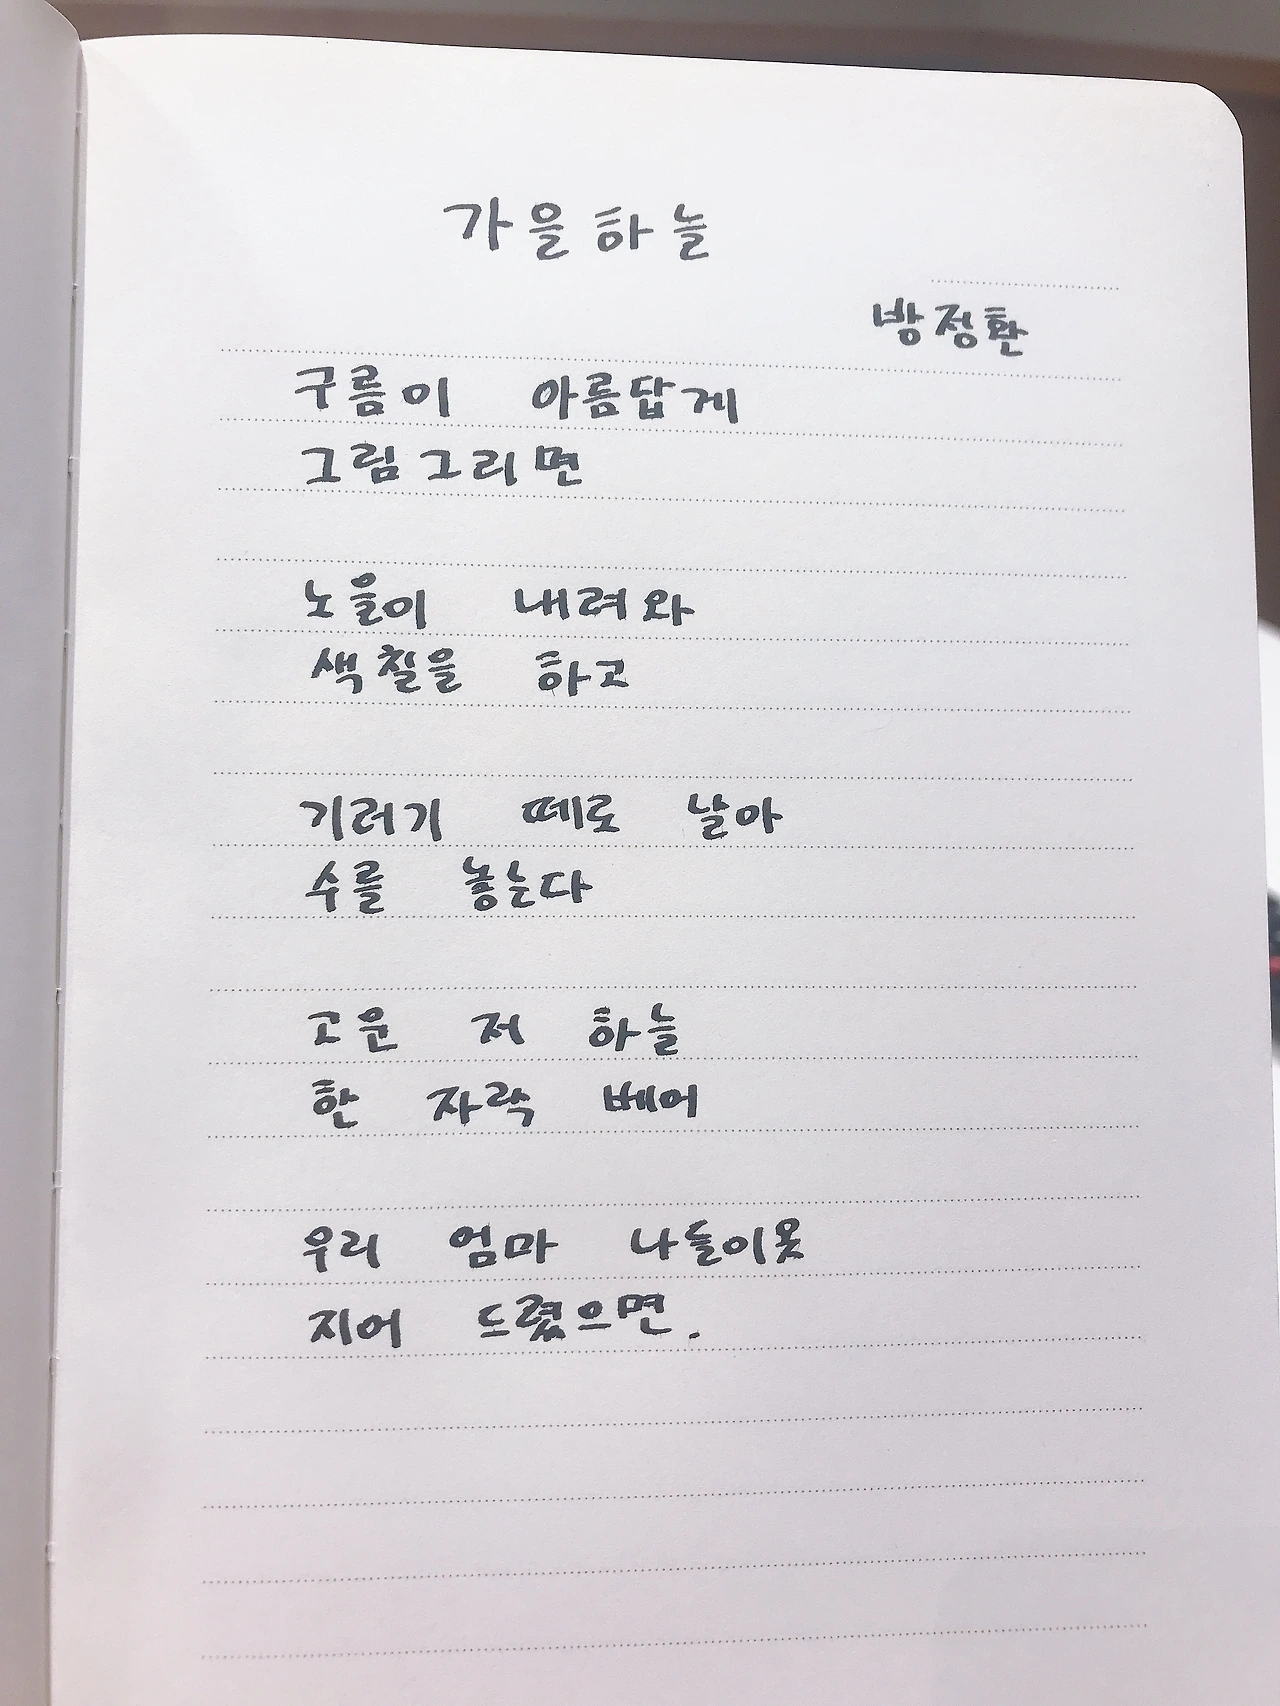 가을하늘
방정환
구름이 아름답게
그림그리면
노을이 내려와
색칠을 하고
기러기 떼로 날아
수를 놓는다
고운 저 하늘
한 자락 베어
우리 엄마 나들이옷
지어 드렸으면.